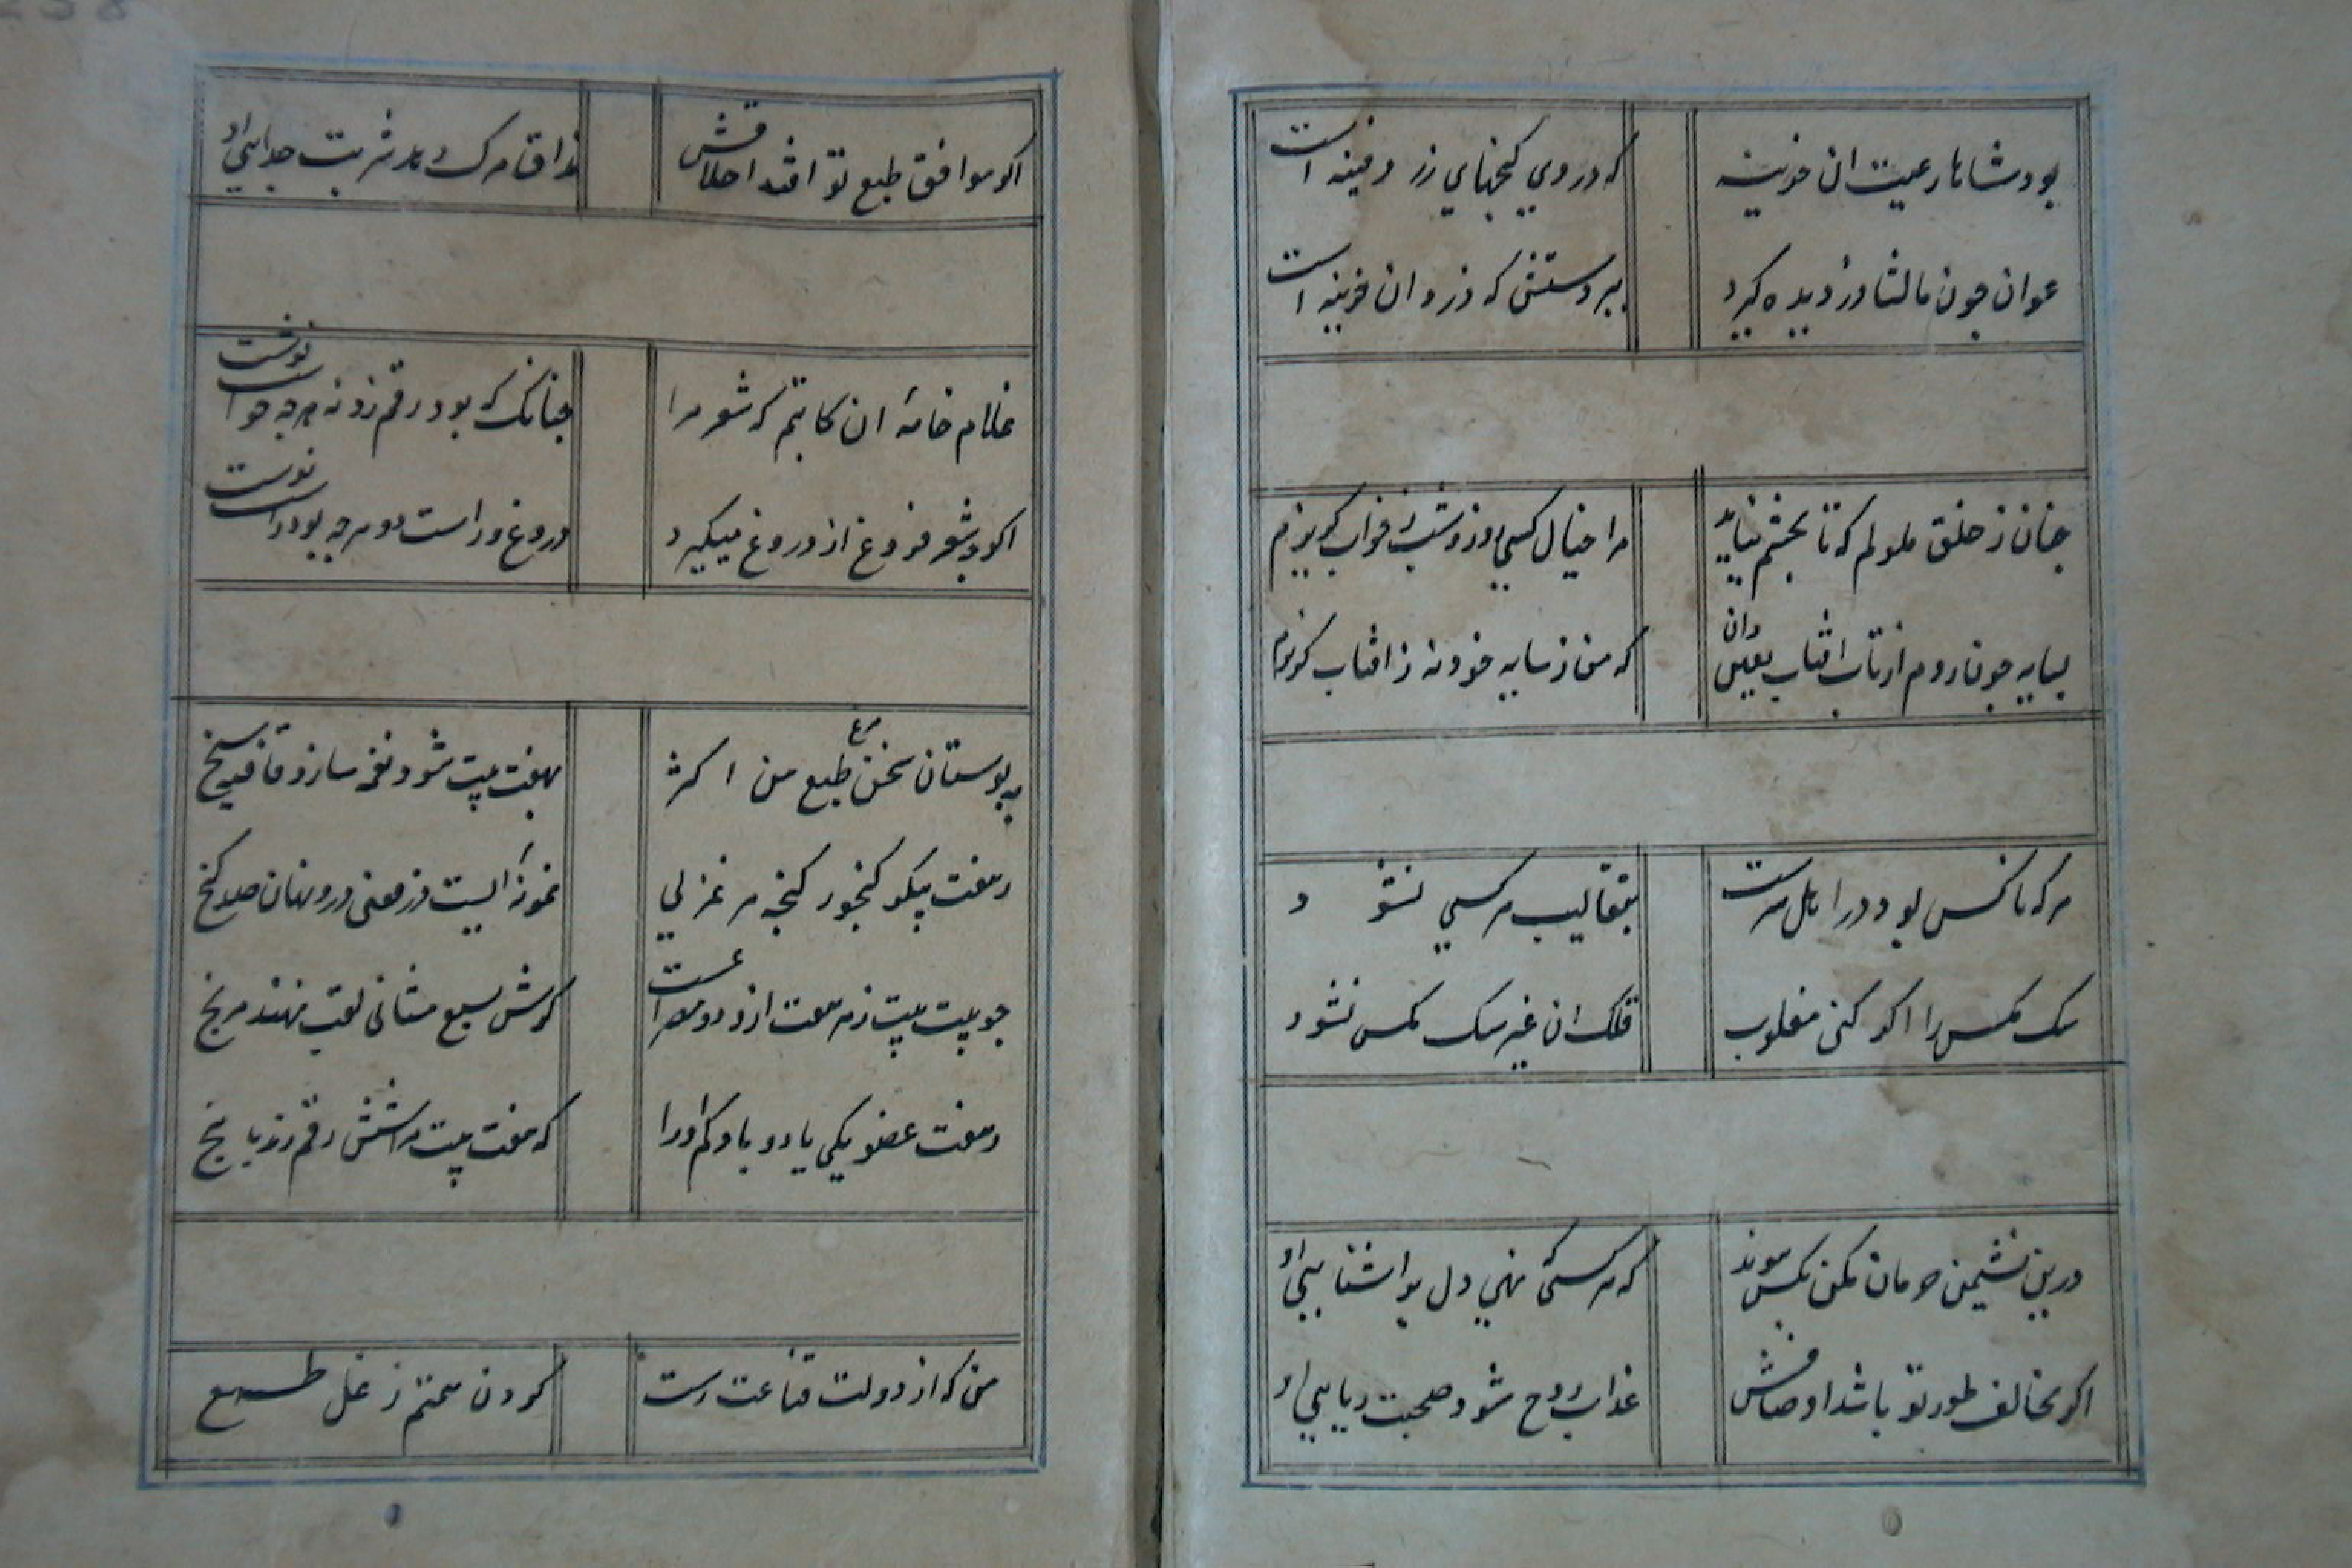 بود شاها رعیت ان خزینه
که در وی گنجهای زر دفینه است
عوان چون مالشا دزدیده گیرد
ببر دستش که دزد ان خزینه است
چنان ز خلق ملولم که تا بچشم نیاید
مرا خیال کسی روز و شب ز خواب گریزم
بسایه چون روم از تاب افتاب یقین دان
که من ز سایه خود نه ز افتاب گریزم
هر که ناکس بود در اصل سرشت
بتقالیب هر کسی نشود
سک مکس را اگر کنی مقلوب
قلک ان غیر سک مکس نشود
درین نشیمن حرمان مکن بکس پیوند
که هر کسی نهی دل بر اشنایی او
اگر مخالف طور تو باشد اوصافش
عذاب روح شود صحبت ریایی او
اگر موافق طبع تو افتد اخلاقش
مذاق مرک دهد شربت جدایی او
غلام خامه ان کاتبم که شعر مرا
چنانک بود رقم زد نه هرچه خواست نوشت
اگر چه شعر فروغ از دروغ میگیرد
دروغ و راست دو هرچه بود راست نوشت
به بوستان سخن مرغ طبع من اکثر
بهفت بیت شود نغمه ساز و قافیه سنج
ز هفت پیکر گنجور گنجه هر غزلی
نمونه ایست ز معنی درو نهان صد گنج
چو بیت بیت ز هر هفت از دو مصراعست
گرش سبع مثانی لقب نهند مرنج
ز هفت عضو یکی یا دو باد کم او را
که هفت بیت مرا شش رقم زند یا پنج
من که از دولت قناعت رست
گردن همتم ز غل طمع